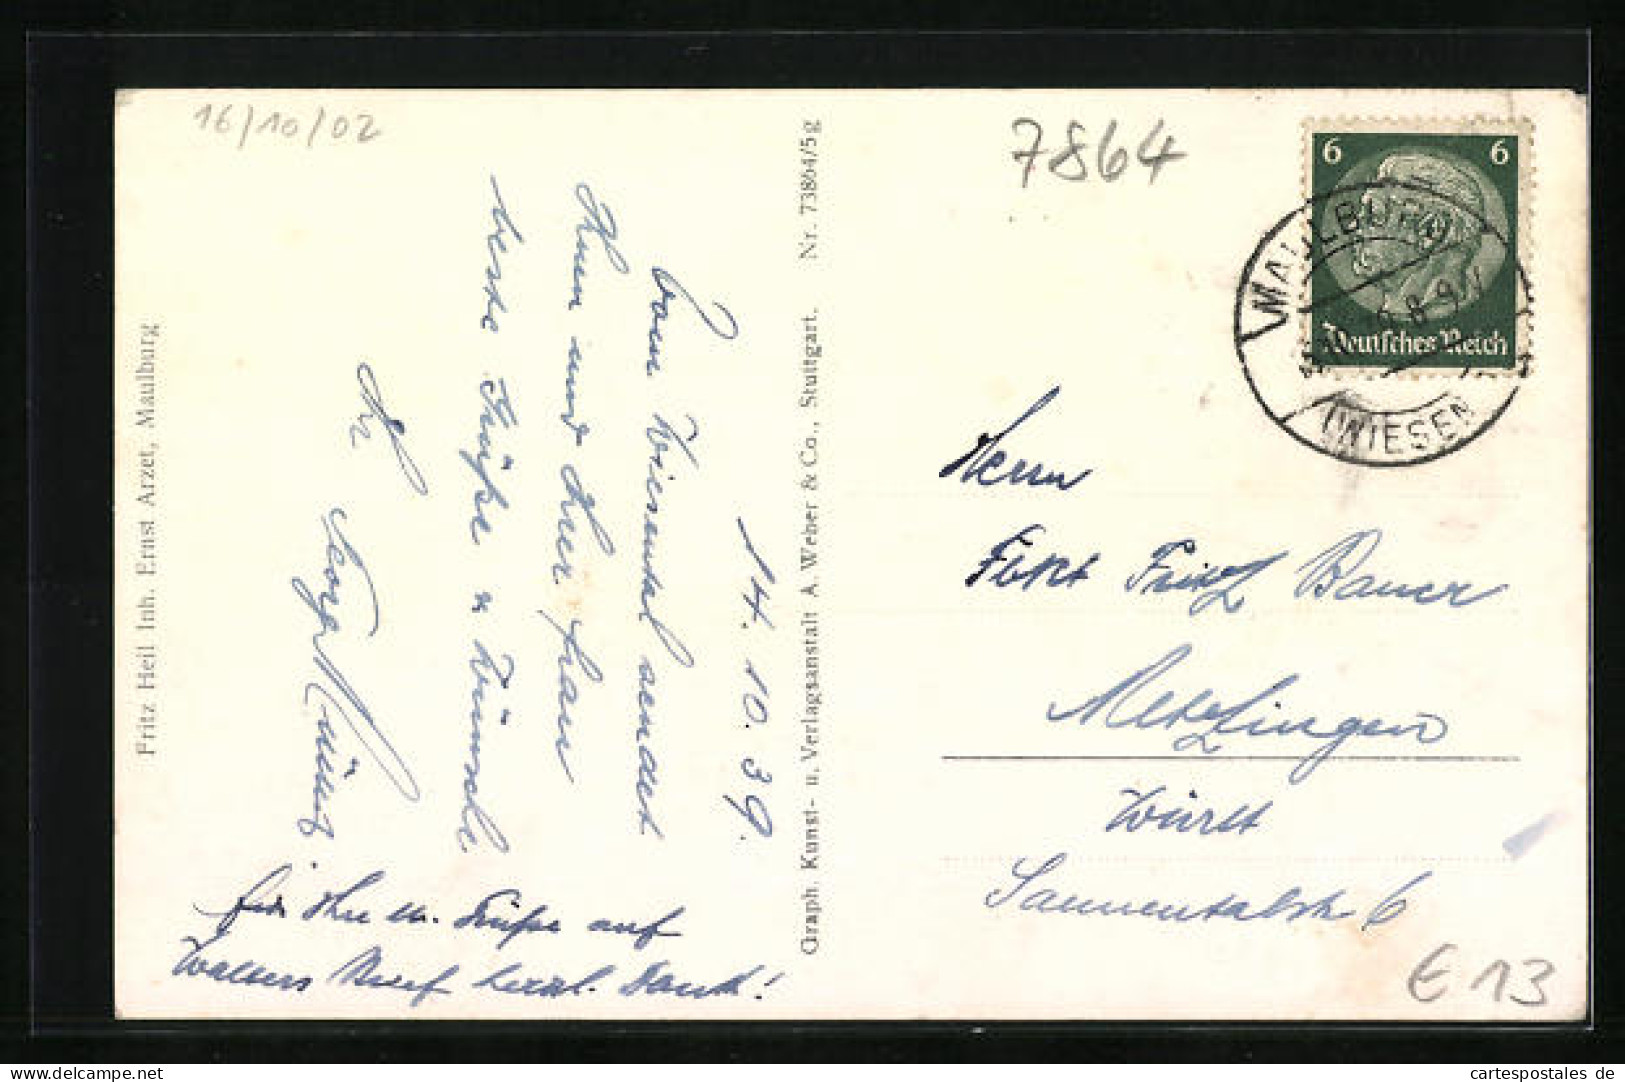 16/10/02
7864
Fritz Heil Inh. Ernst Arzet, Maulburg
14. 10. 39.
Vom Wiesental sendet
Ihnen und Ihrer Frau
beste Grüße u Wünsche
Ihr
Georg
für Ihre u. Grüße auf
Walters Brief herzl. Dank!
Graph. Kunst- u. Verlagsanstalt A. Weber & Co., Stuttgart. Nr. 73864/5g
6 6
Deutsches Reich
MAULBURG
(WIESEN
Herrn
Fritz Bauer
Metzingen
Württ
6
€ 13
cartespostales de